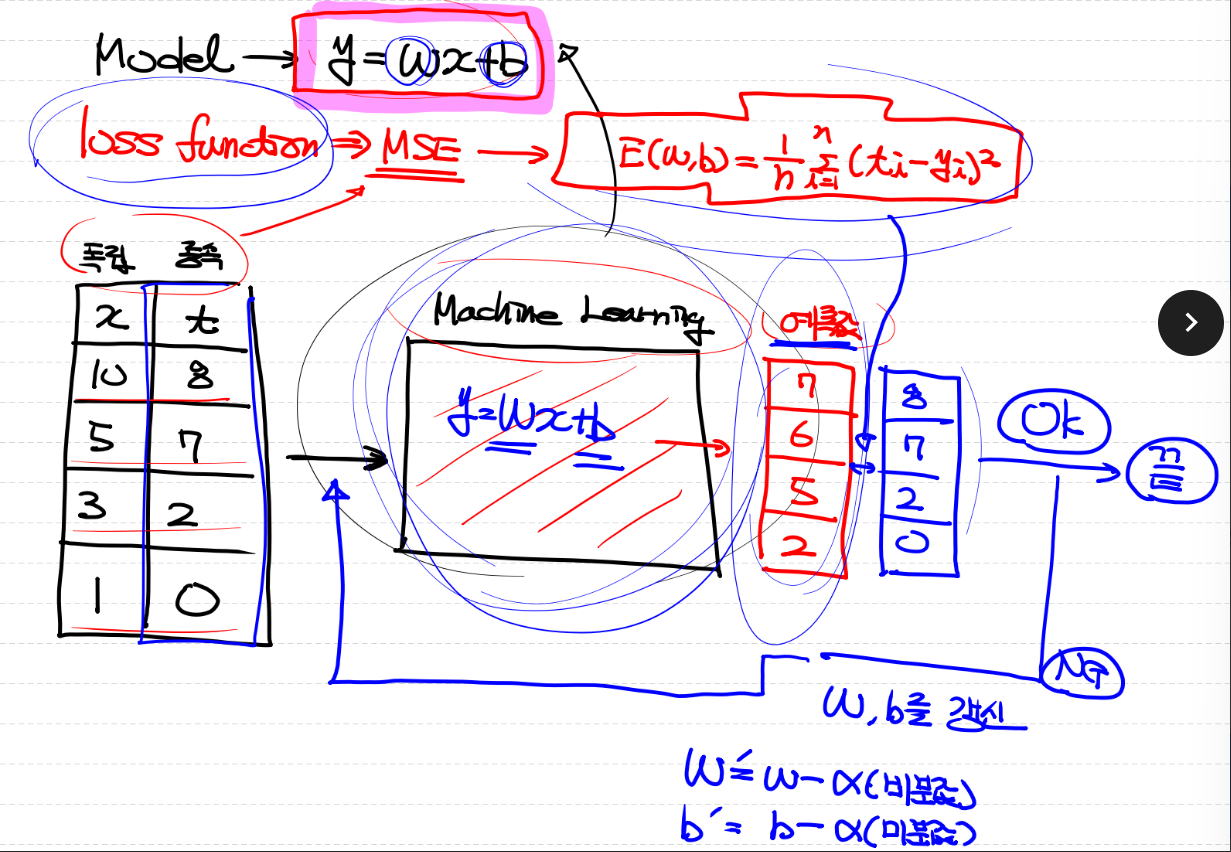 Model → y = wx+b
loss function ⇒ MSE → E(w,b) = 1/n Σ_{i=1}^{n} (ti - yi)²
독립 종속
x t
10 8
5 7
3 2
1 0
Machine Learning
y = wx+b
예측값
7
6
5
2
8
7
2
0
OK
끝
NG
w, b를 갱신
w′ = w - α(미분값)
b′ = b - α(미분값)